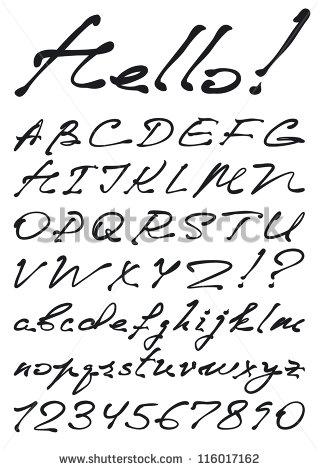 Hello!
ABCDEFG
HIJKLMN
OPQRSTU
VWXYZ!?
abcdefghijklm
nopqrstuvwxyz
1234567890
www.shutterstock.com · 116017162